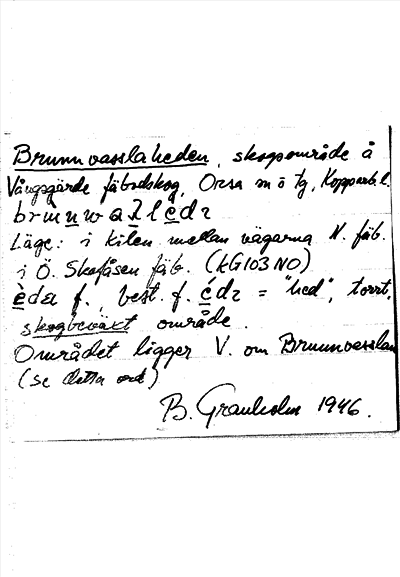 Brunnvasslaheden, skogsområde å
Vångsgärde fäbodskog, Orsa sn ö tg, Kopparb. l.
Läge: i kilen mellan vägarna N. fäb.
i Ö. Skafåsen fäb. (KG103NO)
èda f., best. f. = "hed", torrt,
skogbeväxt område.
Området ligger V. om Brunnvasslan
(se detta ord)
B. Granholm 1946.